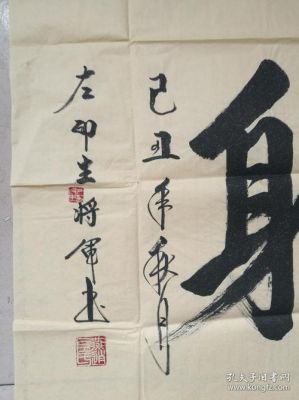 身
己丑年秋月
左印生将军书
孔夫子旧书网